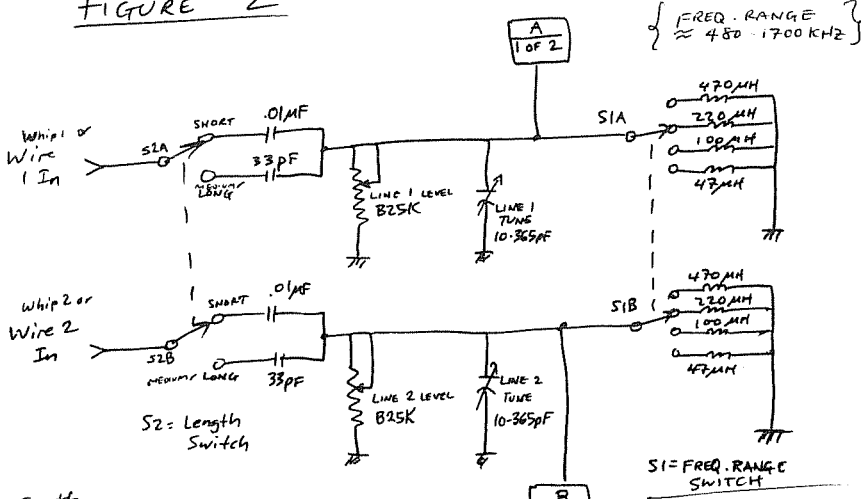 FIGURE 2
{ FREQ. RANGE
≈ 480-1700 KHZ }
A
1 OF 2
Whip 1 or
Wire
1 In
S2A
SHORT
.01µF
33pF
MEDIUM/
LONG
LINE 1 LEVEL
B25K
LINE 1
TUNE
10-365pF
S1A
470µH
220µH
100µH
47µH
Whip 2 or
Wire 2
In
S2B
SHORT
.01µF
MEDIUM/LONG
33pF
LINE 2 LEVEL
B25K
LINE 2
TUNE
10-365pF
S1B
470µH
220µH
100µH
47µH
S2 = Length
Switch
S1 = FREQ. RANGE
SWITCH
B